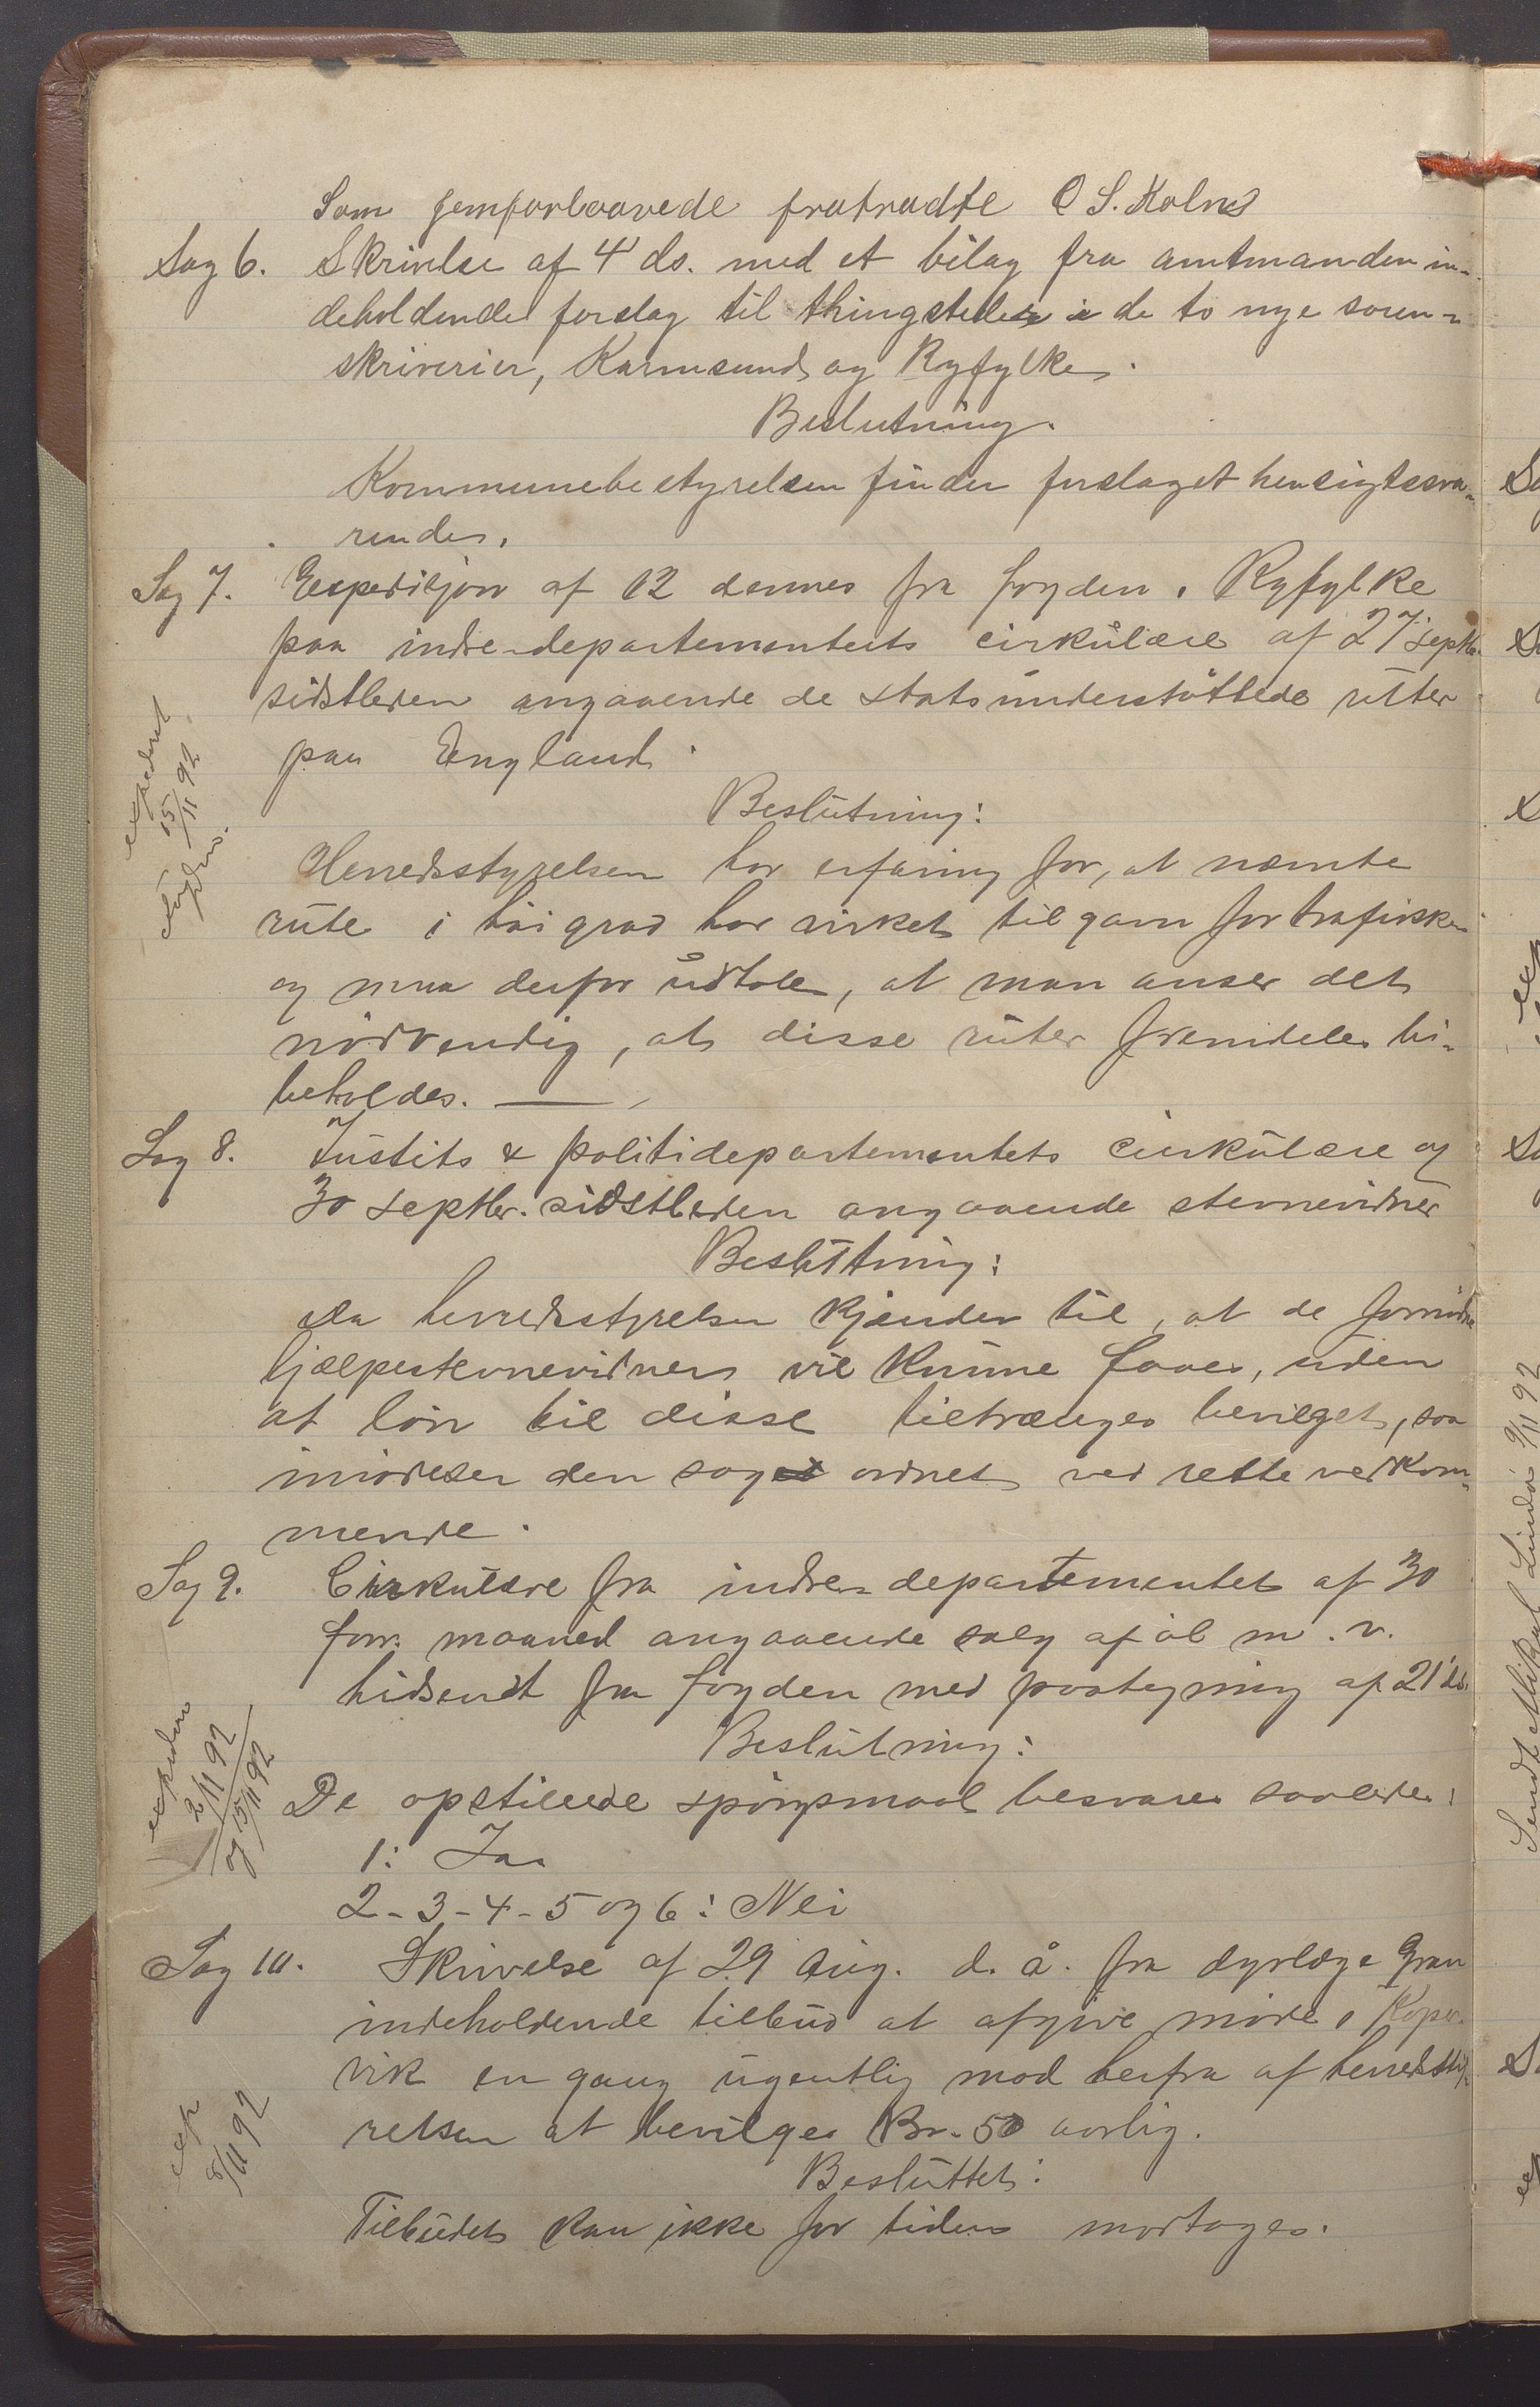 Som hjemforlovede fratraadte O S. Kolnes
Sag 6. Skrivelse af 4' ds. med et bilag fra amtmanden in-
deholdende forslag til thingsteder i de to nye soren-
skriverier, Karmsund og Ryfylke.
Beslutning.
Kommunebestyrelsen finder forslaget hensigtssva-
rende.
Sag 7. Expedisjon af 12 dennes fra fogden i Ryfylke
paa indre-departementets cirkulære af 27' septbr.
sidstleden angaaende de statsunderstöttede rüter
paa England.
expederet 15/11 92
fogden.
Beslütning:
Herredsstyrelsen har erfaring for, at nævnte
rüte i höi grad har virket til gavn for trafikken
og maa derfor üdtale, at man anser det
nödvendig, at disse rüter fremdeles bi-
beholdes.
Sag 8. Jüstits & politidepartementets cirkülære af
30 septbr. sidstleden angaaende stevnevidner
Beslütning:
Da herredsstyrelsen kjender til, at de fornödne
hjælpestevnevidner vil künne faaes, üden
at lön til disse tiltrænges bevilget, saa
imödeser den sag ordnet ved rette vedkom-
mende.
Sag 9. Cirkulære fra indre-departementet af 30
forr. maaned angaaende salg af öl m. v.
hidsendt fra fogden med paategning af 21' ds.
expederes
2/11 92
og 15/11 92
Beslütning:
De opstillede spörgsmaal besvares saaledes:
1: Ja
2-3-4-5 og 6: Nei
Sag 10. Skrivelse af 29 Aüg. d. å. fra dyrlæge Gran
indeholdende tilbüd at afgive möde i Koper-
vik en gang ügentlig mod herfra af herredssty-
relsen at bevilges Kr. 50 aarlig.
exp
8/11 92
Beslüttet:
Tilbüdet kan ikke for tiden modtages.
Sendt Mikal Lindö 9/11 92